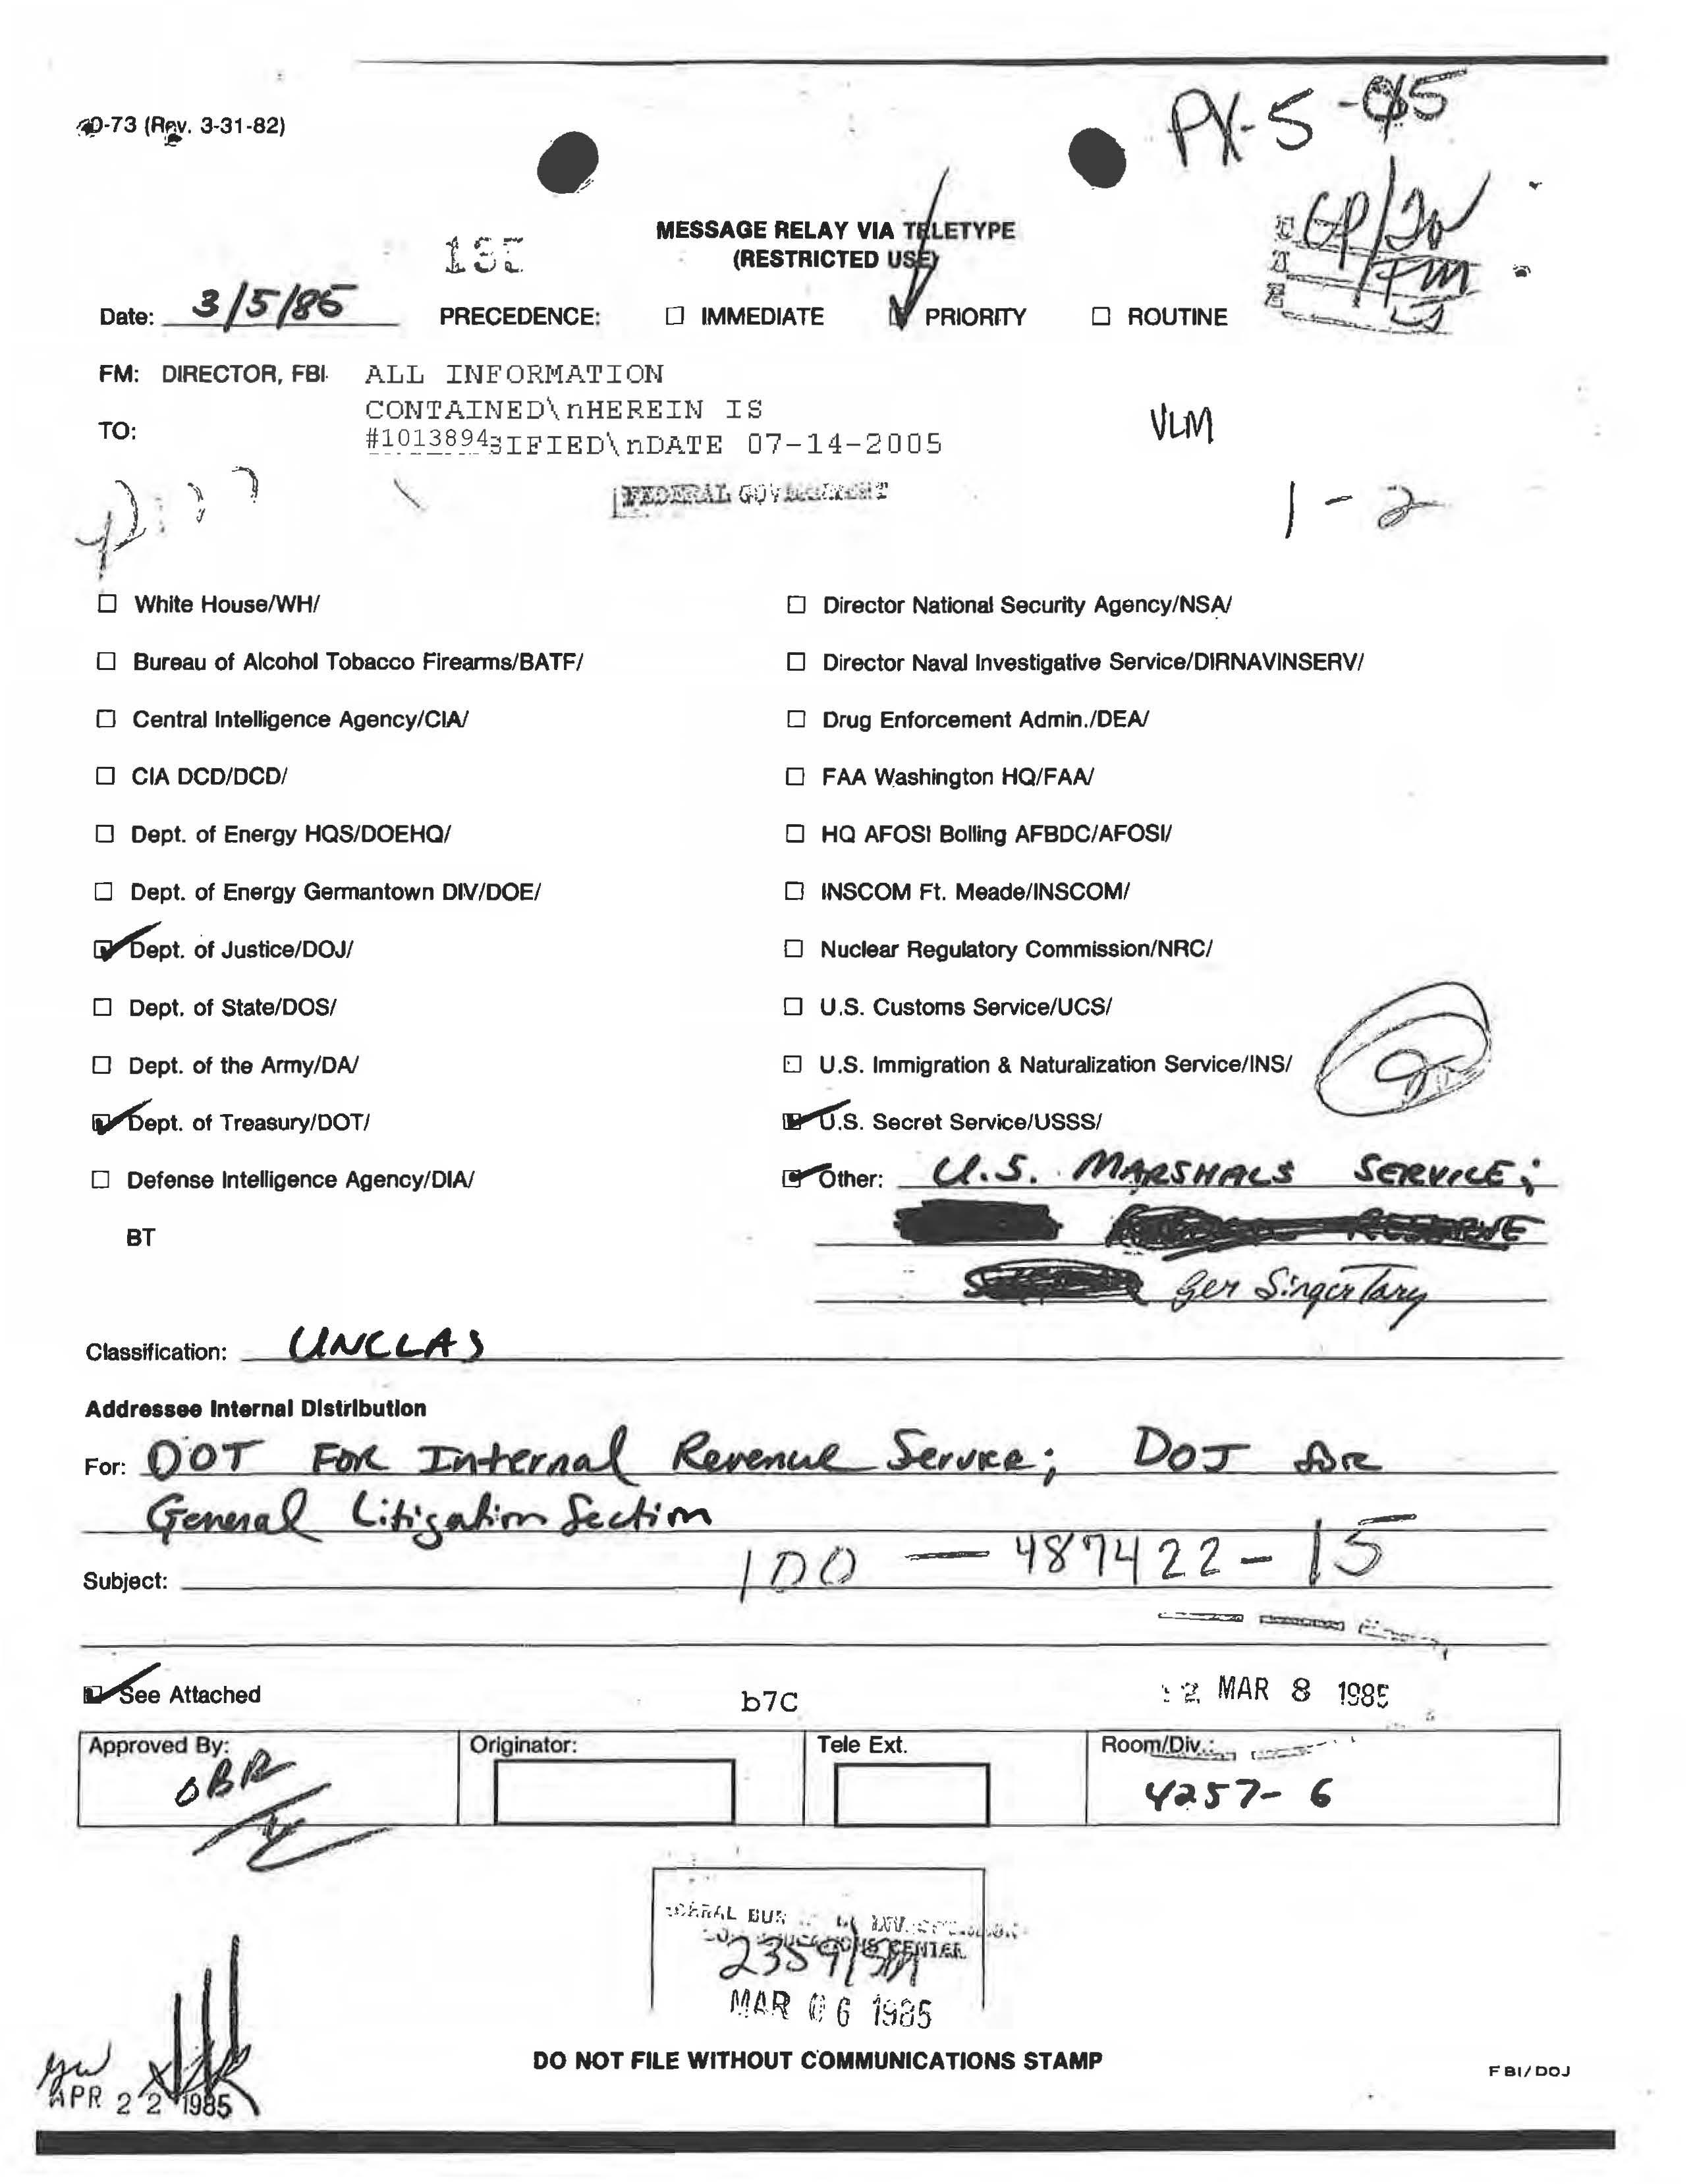 0-73 (Rev. 3-31-82)
PX-5-
MESSAGE RELAY VIA TELETYPE
(RESTRICTED USE)
Date: 3/5/85
PRECEDENCE: ☐ IMMEDIATE ☑ PRIORITY ☐ ROUTINE
FM: DIRECTOR, FBI
ALL INFORMATION
CONTAINED\nHEREIN IS
TO:
#1013894SIFIED\nDATE 07-14-2005
VLM
FEDERAL GOVERNMENT
1-2
☐ White House/WH/
☐ Director National Security Agency/NSA/
☐ Bureau of Alcohol Tobacco Firearms/BATF/
☐ Director Naval Investigative Service/DIRNAVINSERV/
☐ Central Intelligence Agency/CIA/
☐ Drug Enforcement Admin./DEA/
☐ CIA DCD/DCD/
☐ FAA Washington HQ/FAA/
☐ Dept. of Energy HQS/DOEHQ/
☐ HQ AFOSI Bolling AFBDC/AFOSI/
☐ Dept. of Energy Germantown DIV/DOE/
☐ INSCOM Ft. Meade/INSCOM/
☑ Dept. of Justice/DOJ/
☐ Nuclear Regulatory Commission/NRC/
☐ Dept. of State/DOS/
☐ U.S. Customs Service/UCS/
☐ Dept. of the Army/DA/
☐ U.S. Immigration & Naturalization Service/INS/
☑ Dept. of Treasury/DOT/
☑ U.S. Secret Service/USSS/
☐ Defense Intelligence Agency/DIA/
☑ Other: U.S. MARSHALS SERVICE;
RESERVE
BT
per Singertary
Classification: UNCLAS
Addressee Internal Distribution
For: DOT FOR Internal Revenue Service; DOJ FOR
General Litigation Section
Subject: 100-487422-15
☑ See Attached
b7C
12 MAR 8 1985
Approved By: OBR
Originator:
Tele Ext.
Room/Div.: 4257-6
COMMUNICATIONS CENTER
2359
MAR 06 1985
DO NOT FILE WITHOUT COMMUNICATIONS STAMP
FBI/DOJ
APR 22 1985